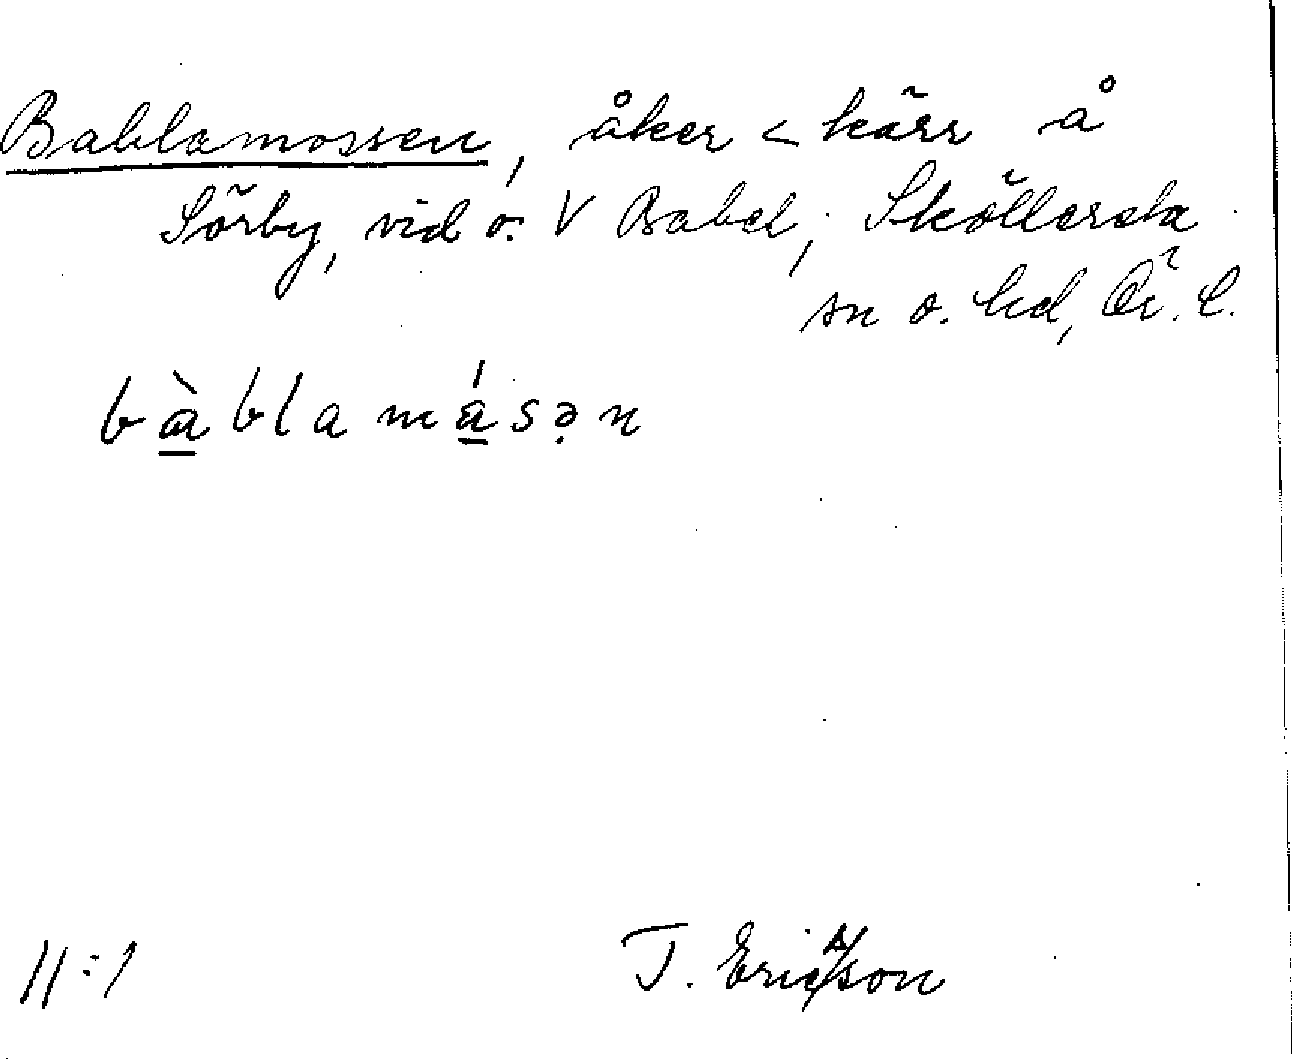 Bablamossen, åker < kärr å
Sörby, vid o. V Babel, Sköllersta
sn o. hd, Ör. l.
bàblamásən
11:1 T. Ericsson